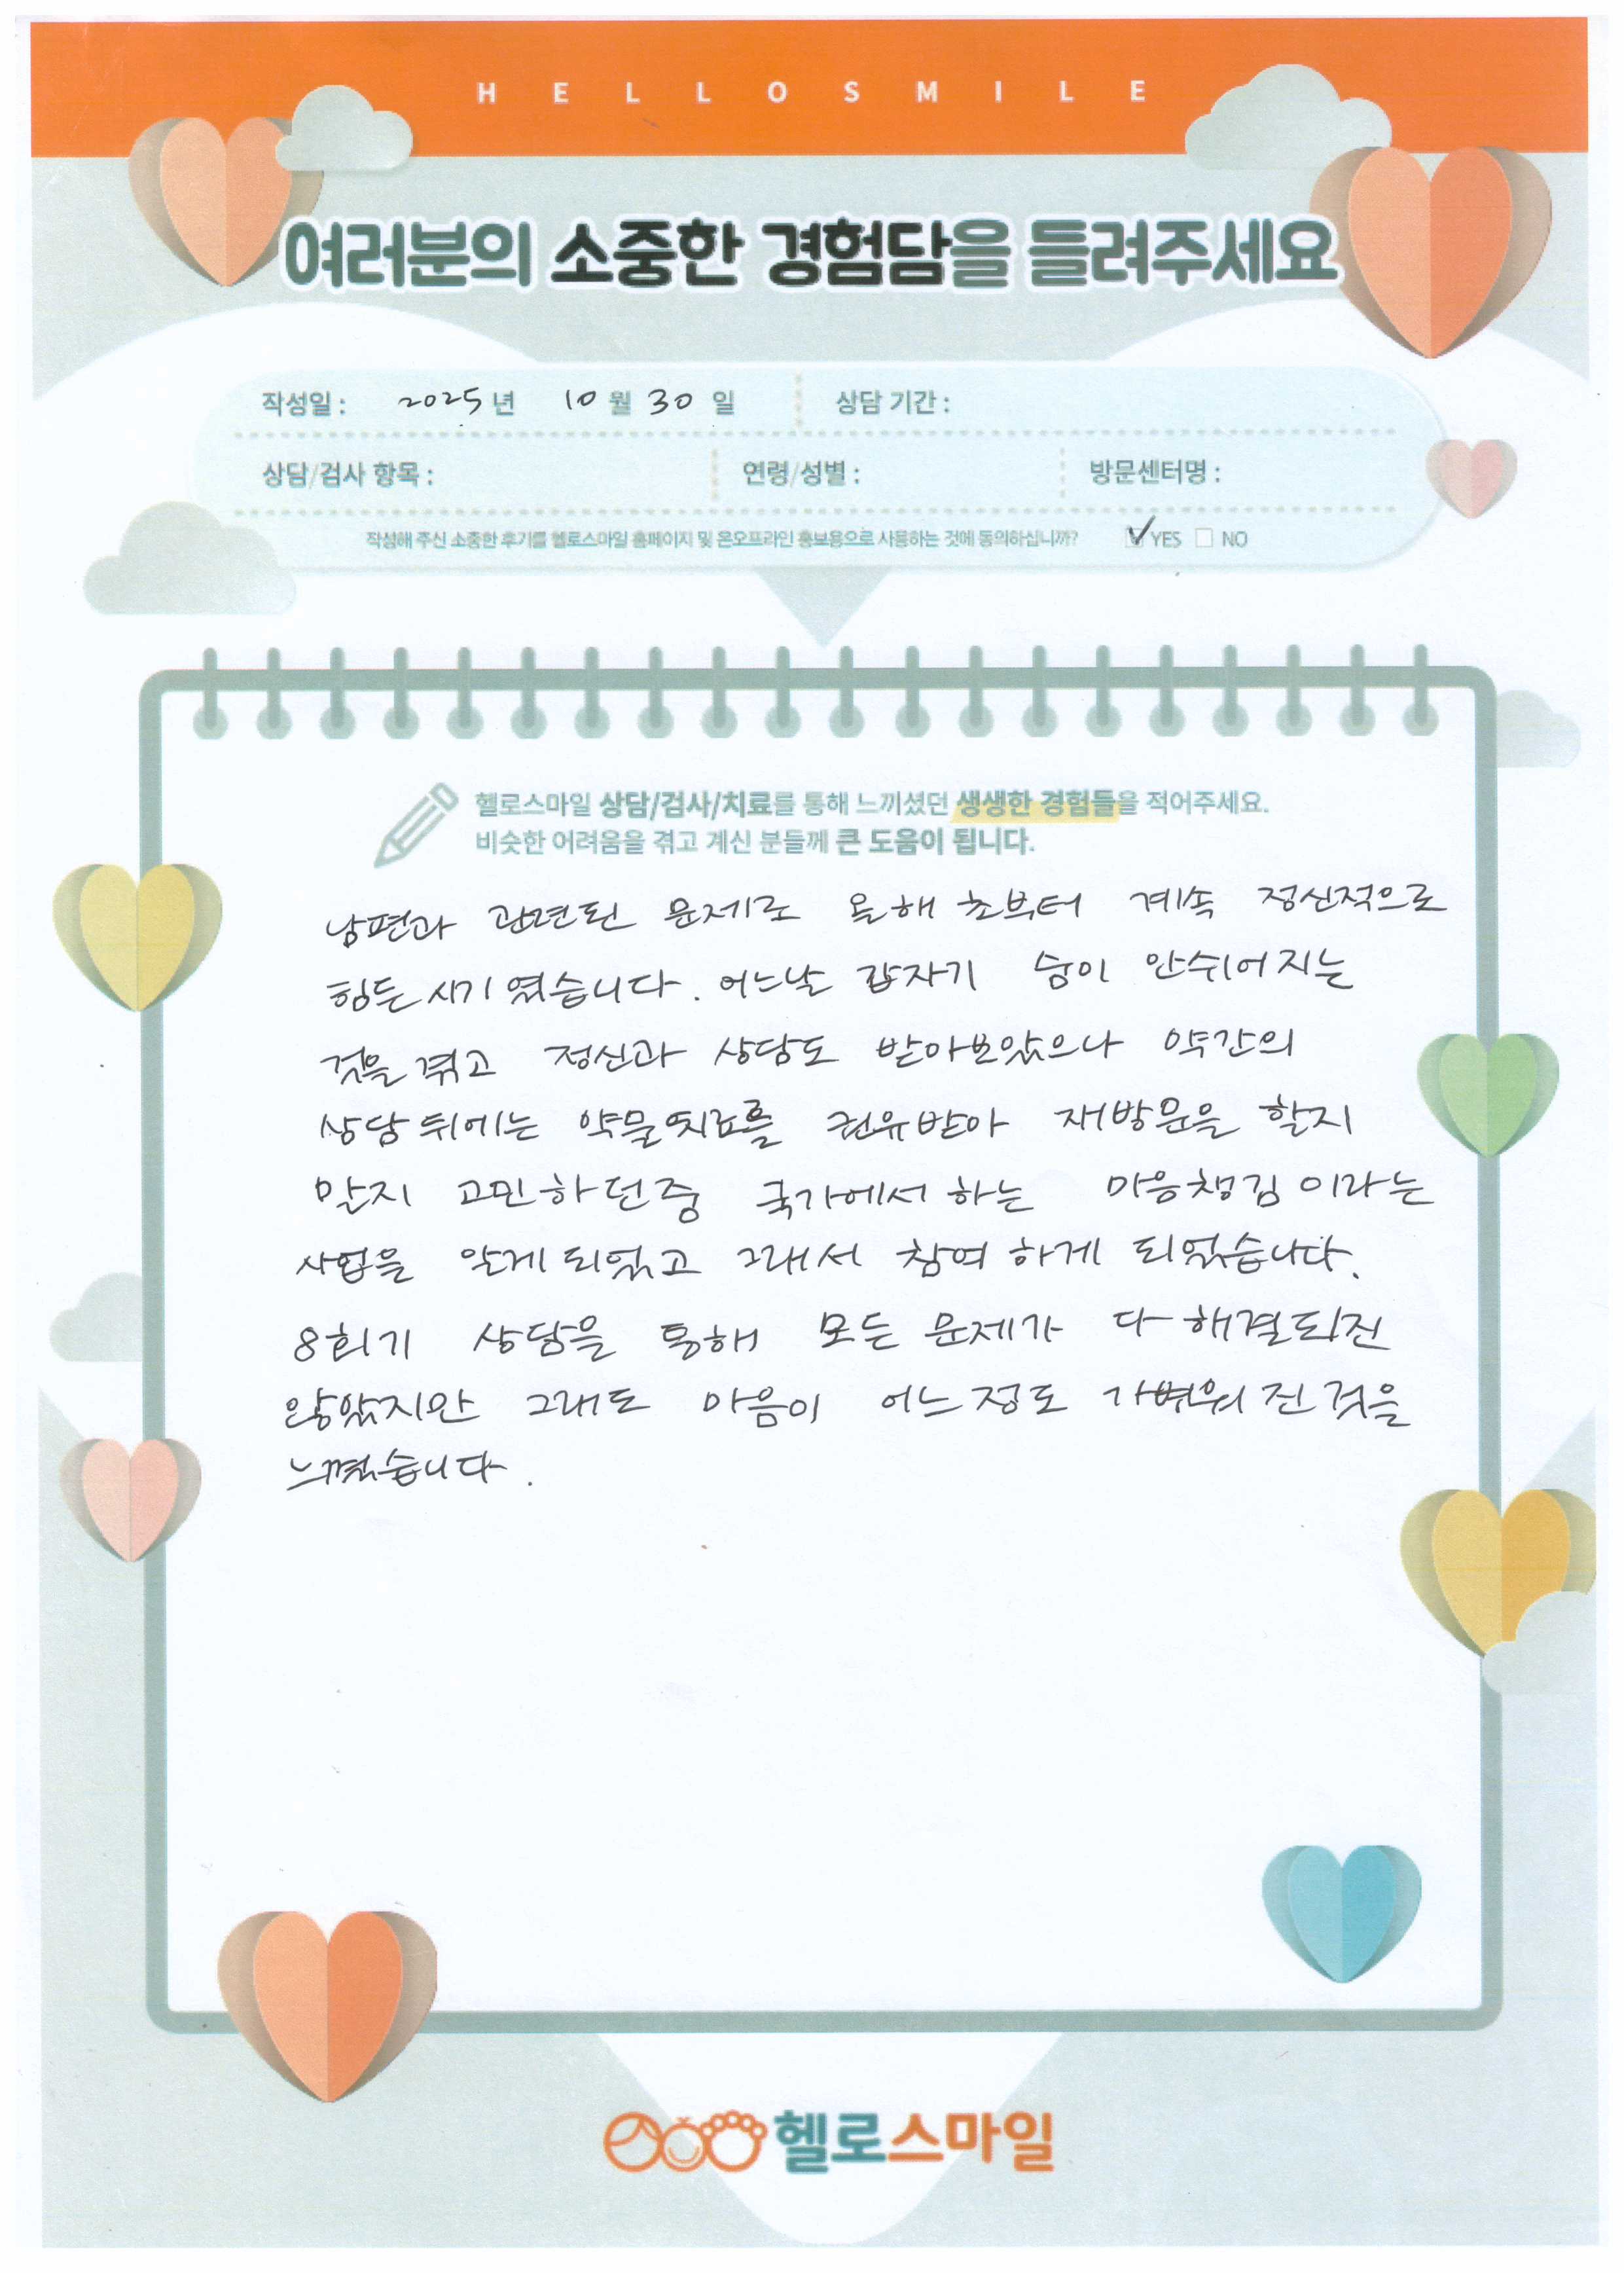 HELLOSMILE
여러분의 소중한 경험담을 들려주세요
작성일 : 2025년 10월 30일 상담 기간 :
상담/검사 항목 : 연령/성별 : 방문센터명 :
작성해 주신 소중한 후기를 헬로스마일 홈페이지 및 온오프라인 홍보용으로 사용하는 것에 동의하십니까? ☑ YES ☐ NO
헬로스마일 상담/검사/치료를 통해 느끼셨던 생생한 경험들을 적어주세요.
비슷한 어려움을 겪고 계신 분들께 큰 도움이 됩니다.
남편과 관련된 문제로 올해 초부터 계속 정신적으로
힘든 시기 였습니다. 어느날 갑자기 숨이 안쉬어지는
것을 겪고 정신과 상담도 받아보았으나 약간의
상담 뒤에는 약물치료를 권유받아 재방문을 할지
말지 고민하던중 국가에서 하는 마음챙김 이라는
사업을 알게 되었고 그래서 참여 하게 되었습니다.
8회기 상담을 통해 모든 문제가 다 해결되진
않았지만 그래도 마음이 어느 정도 가벼워 진 것을
느꼈습니다.
헬로스마일